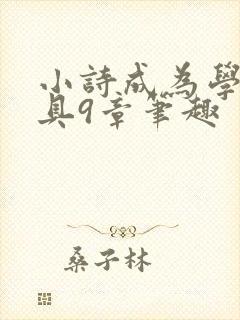 小詩成為學
具9章筆趣
桑子林